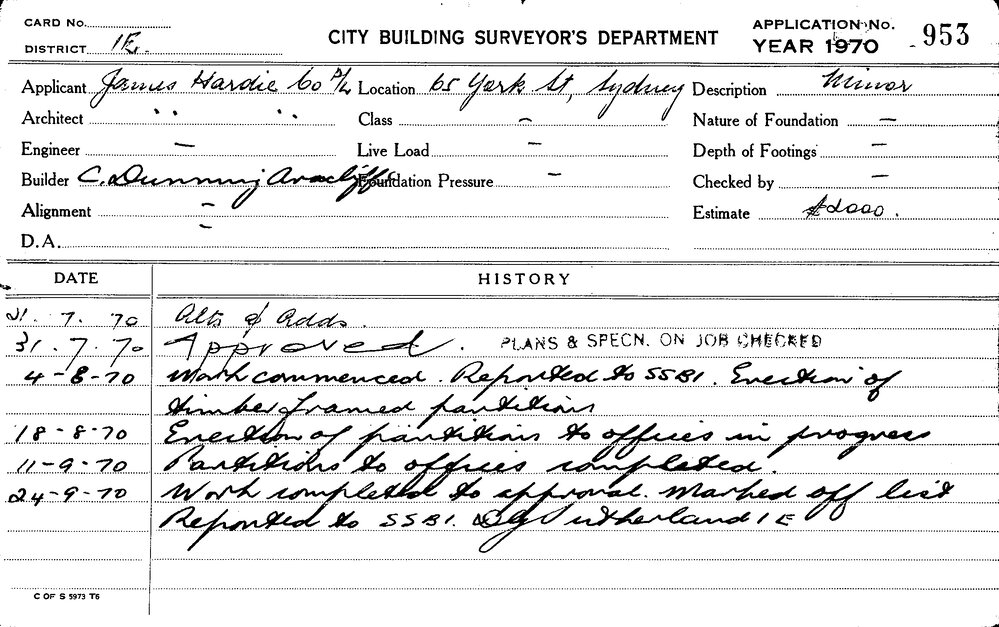 CARD No.
DISTRICT 1E.
CITY BUILDING SURVEYOR'S DEPARTMENT
APPLICATION No. 953
YEAR 1970
Applicant James Hardie Co P/L Location 65 York St, Sydney Description Minor
Architect " " Class – Nature of Foundation –
Engineer – Live Load – Depth of Footings –
Builder C. Dunning Foundation Pressure – Checked by –
Alignment – Estimate $2000.
D.A. –
DATE HISTORY
21. 7. 70 Alts & Adds.
31. 7. 70 Approved. PLANS & SPECN. ON JOB CHECKED
4-8-70 Work commenced. Reported to SSBI. Erection of
timber framed partitions
18-8-70 Erection of partitions to offices in progress
11-9-70 Partitions to offices completed.
24-9-70 Work completed to approval. Marked off list
Reported to SSBI. Sutherland 1E
C OF S 5973 T6